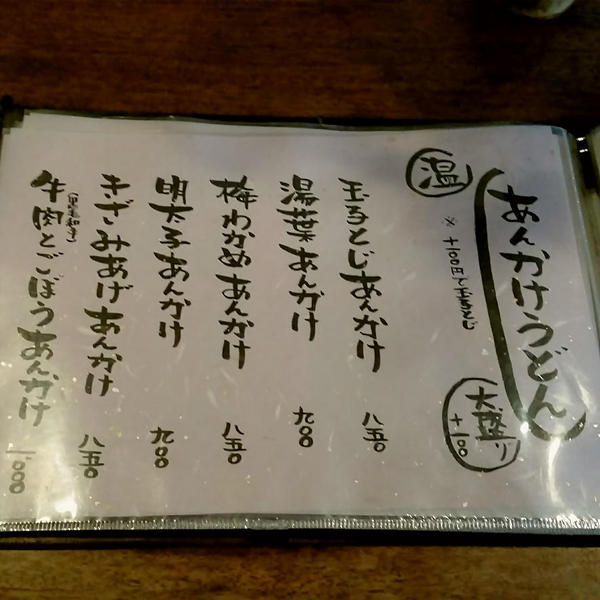 あんかけうどん
大盛り
+100
温
※ +100円で玉子とじ
玉子とじあんかけ 八五〇
湯葉あんかけ 九〇〇
梅わかめあんかけ 八五〇
明太子あんかけ 九〇〇
きざみあげあんかけ 八五〇
(黒毛和牛)
牛肉とごぼうあんかけ 一〇〇〇